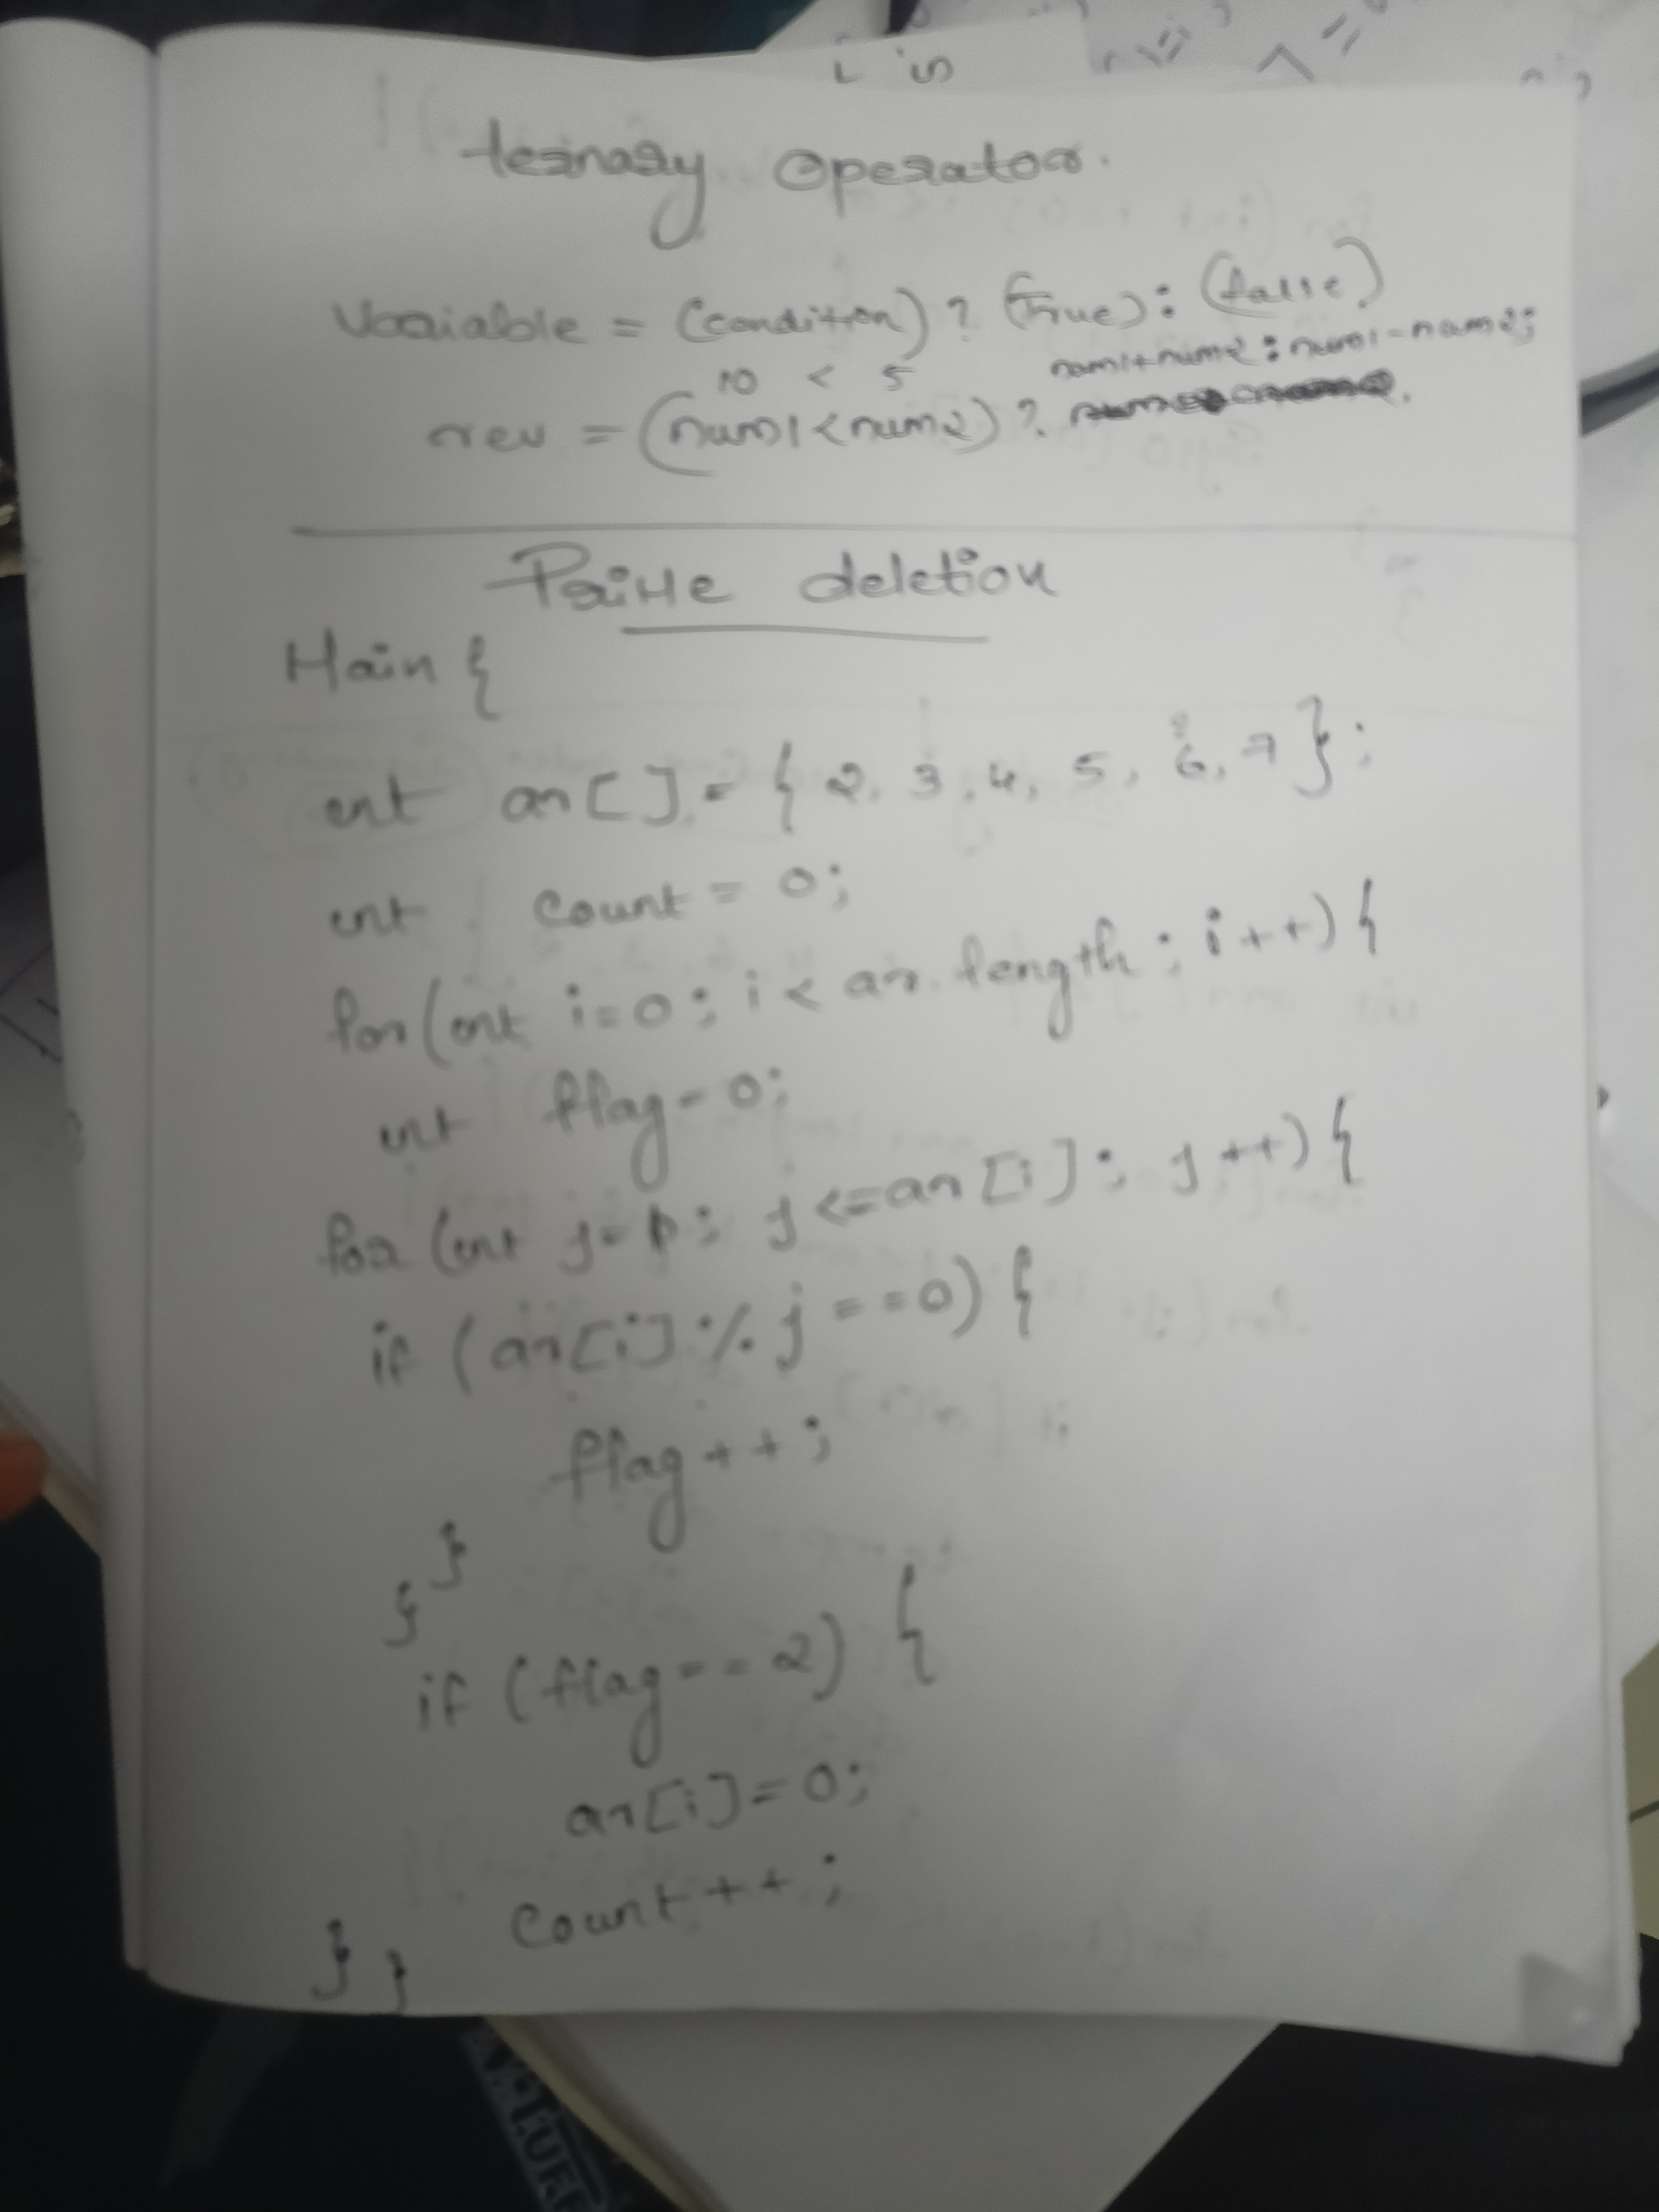 ternary operator.
Variable = (condition) ? (True) : (false)
10 < 5 num1+num2 : num1-num2;
rev = (num1<num2) ?
Prime deletion
Main {
int ar[] = { 2, 3, 4, 5, 6, 7 };
int count = 0;
for(int i=0; i < ar.length ; i++) {
int flag = 0;
for (int j=1; j <=ar[i]; j++) {
if (ar[i] % j ==0) {
flag++;
}
}
if (flag == 2) {
ar[i]=0;
count++;
} }